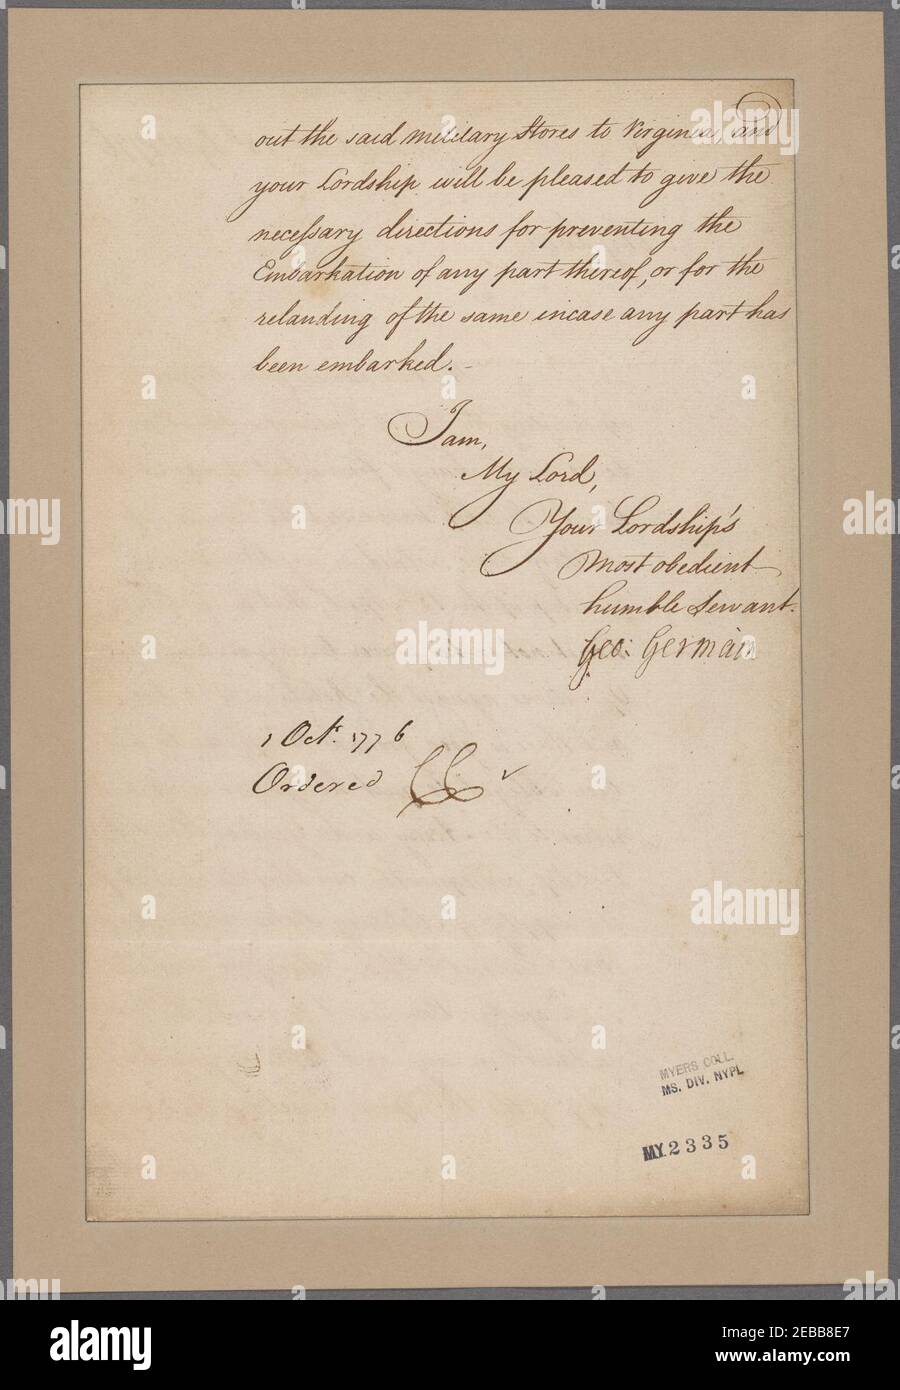 out the said Military Stores to Virginia, and
your Lordship will be pleased to give the
necessary directions for preventing the
Embarkation of any part thereof, or for the
relanding of the same incase any part has
been embarked. -
I am,
My Lord,
Your Lordship's
most obedient
humble Servant.
Geo: Germain
1 Octr. 1776
Ordered
MYERS COLL.
MS. DIV. NYPL
MY 2335
alamy
Image ID: 2EBB8E7
www.alamy.com